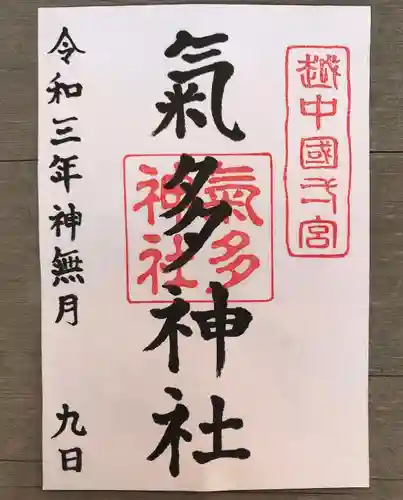 越中國一宮
氣多神社
氣多
神社
令和三年神無月 九日